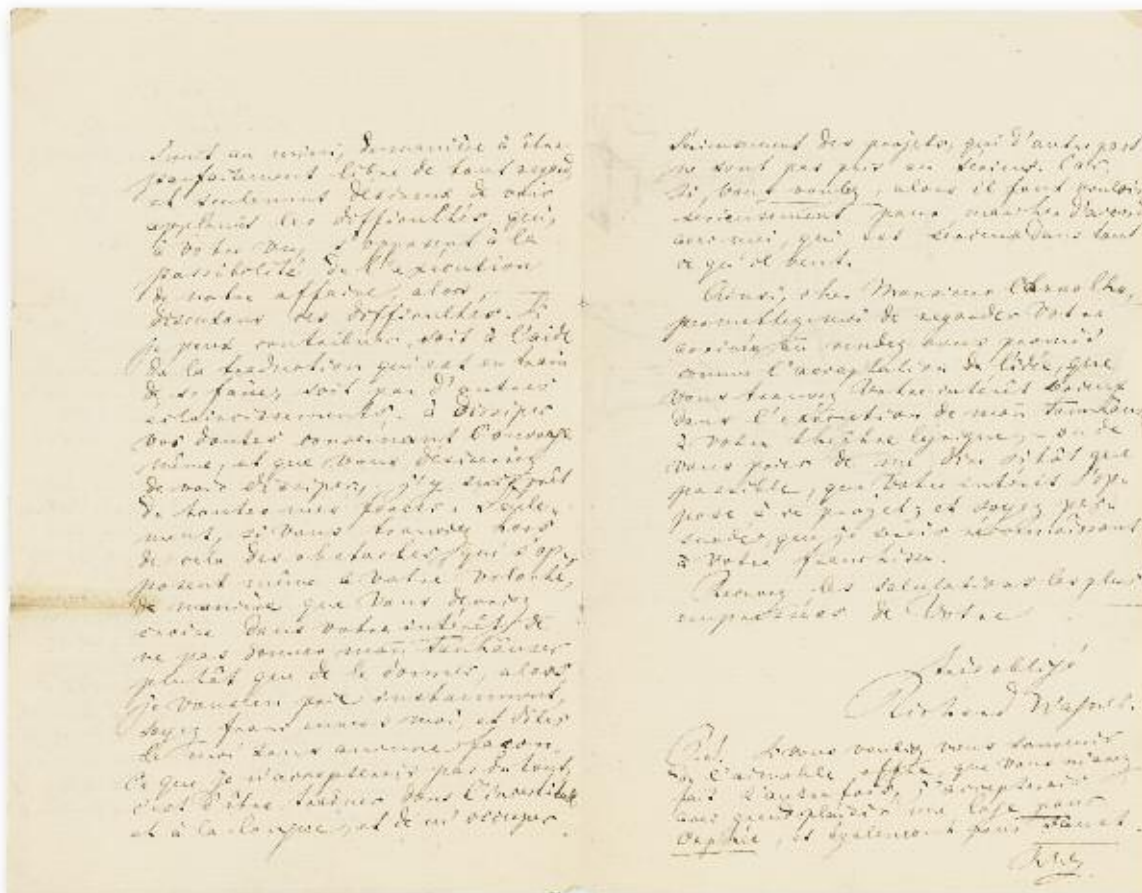 sont au mini, de manière à être
parfaitement libre de tout regard,
et seulement désireux de voir
applanir les difficultés, qui,
à votre vue, s'opposent à la
possibilité de l'exécution
de notre affaire, alors,
discutons ces difficultés. Si
je peux contribuer, soit à l'aide
de la traduction qui est en train
de se faire, soit par d'autres
éclaircissements, à dissiper
vos doutes concernant l'ouvrage
même, et que vous désireriez
de voir dissiper, j'y suis prêt
de toutes mes forces. Seule-
ment, si vous trouvez hors
de cela des obstacles, qui s'op-
posent même à votre volonté,
de manière que vous devriez
croire dans votre intérêt de
ne pas donner mon Tanhäuser
plutôt que de le donner, alors
je vous en prie instamment,
soyez franc envers moi, et dites
le moi sans aucune façon.
Ce que je n'accepterais pas du tout,
c'est d'être trainer dans l'incertitude
et à la longue, et de m'occuper
des projets, qui d'autre part
ne sont pas pris au sérieux. Car,
si, vous voulez, alors il faut vouloir
sérieusement pour marcher d'accord
avec moi, qui est sérieux dans tout
ce qu'il veut.
Ainsi, cher Monsieur Carvalho,
promettez-moi de regarder votre
arrivée au rendez vous promis
comme l'acceptation de l'idée, que
vous trouvez votre intérêt sérieux
dans l'exécution de mon Tanhäuser
à votre théâtre lyrique, – ou de
vous prier de me dire sitôt que
possible, que votre intérêt s'op-
pose à ce projet; et soyez per-
suadé, que je serais reconnaissant
à votre franchise.
Recevez les salutations les plus
empressées de Votre
très obligé
Richard Wagner.
Si vous voulez vous souvenir
de l'aimable offre que vous m'avez
fait l'autre fois, j'accepterais
avec grand plaisir une loge pour
Orphée, et également pour